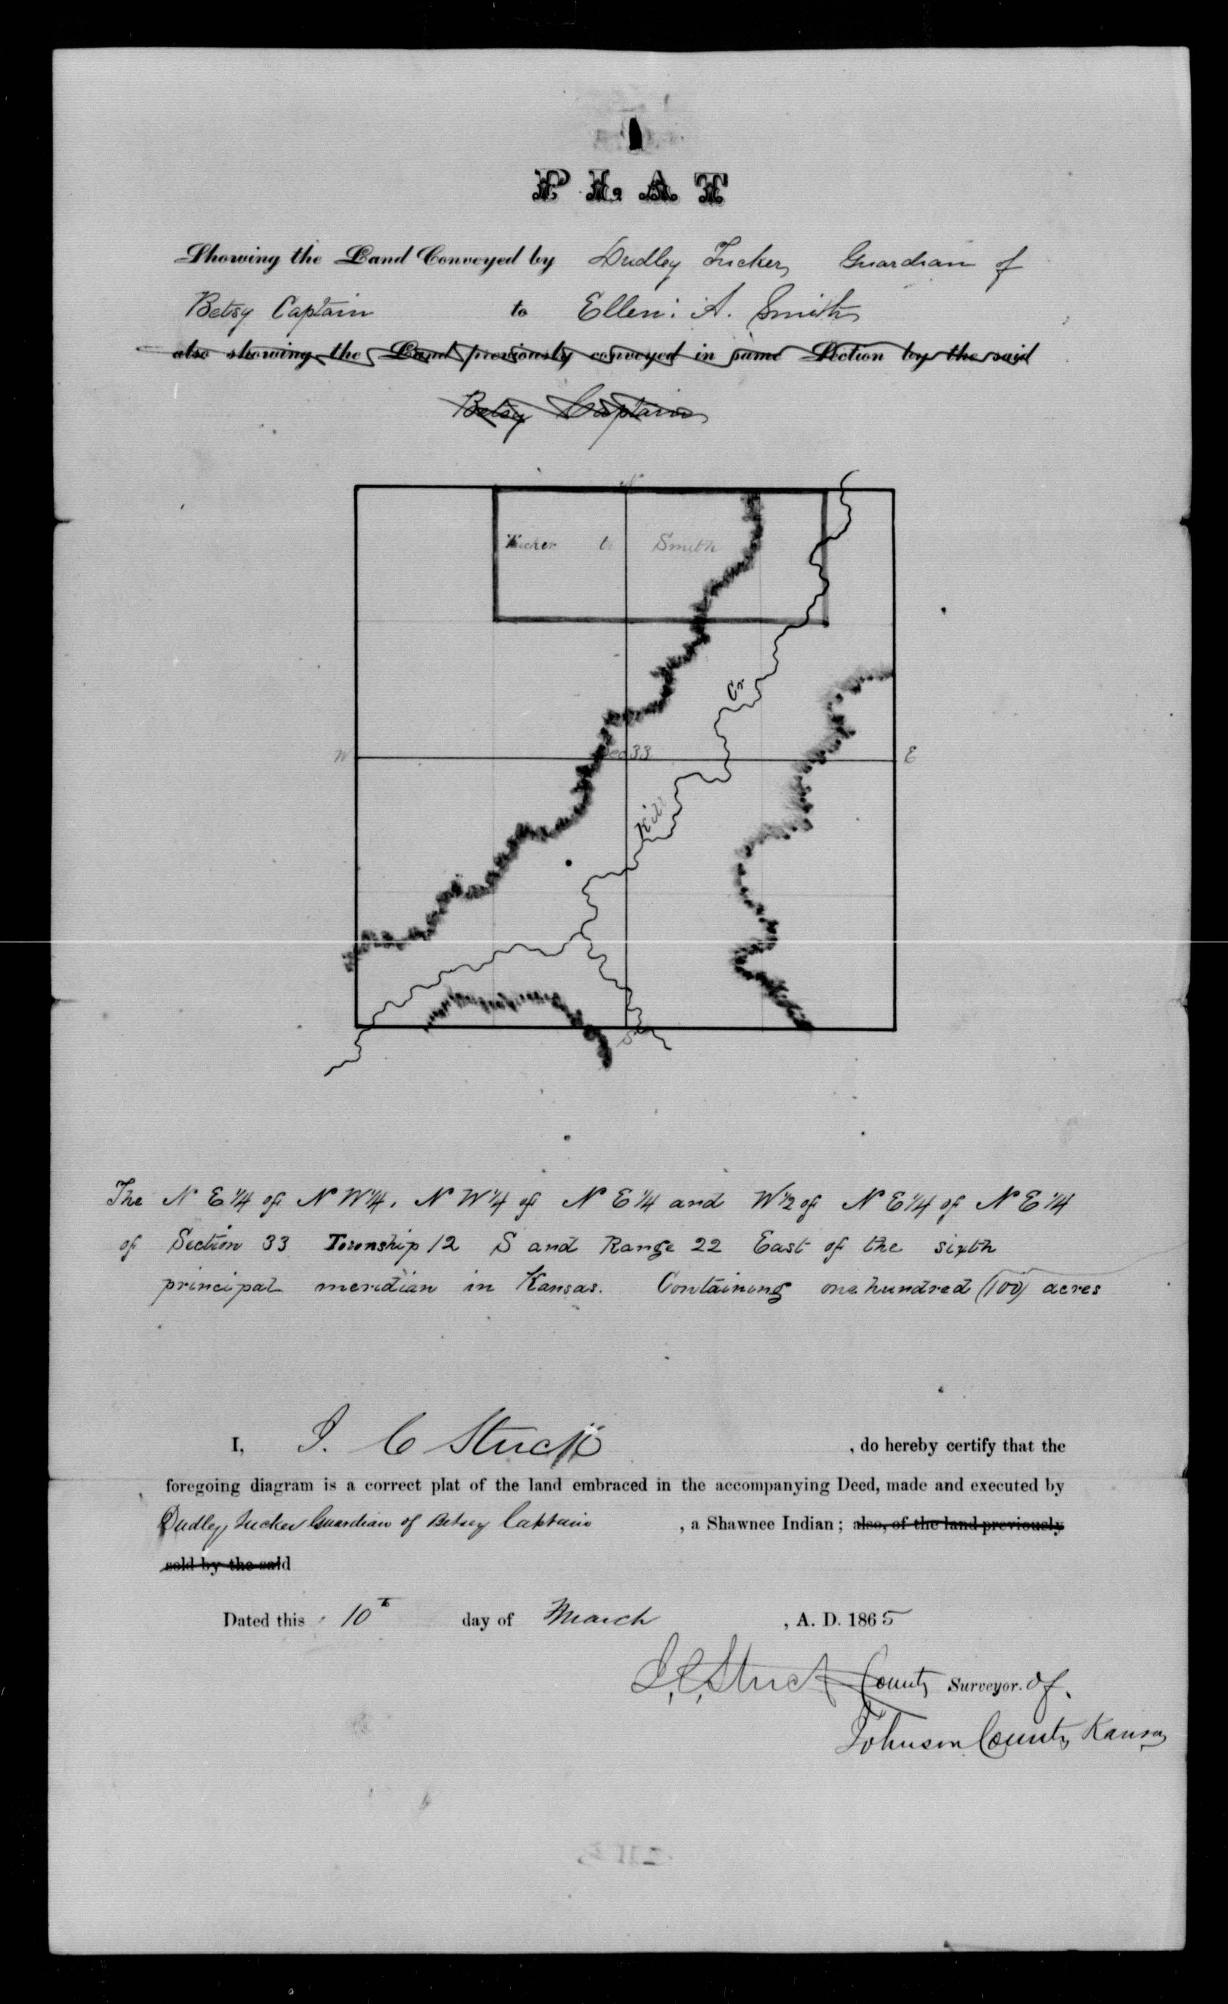 PLAT
Showing the Land Conveyed by Dudley Tucker, Guardian of
Betsy Captain to Ellen. A. Smith
also showing the Land previously conveyed in same Section by the said
Betsy Captain
N
Tucker to Smith
Cr
W Sec 33 E
Kill
S
The N E 1/4 of N W 1/4, N W 1/4 of N E 1/4 and W 1/2 of N E 1/4 of N E 1/4
of Section 33 Township 12 S and Range 22 East of the sixth
principal meridian in Kansas. Containing one hundred (100) acres
I, J. C Stuck , do hereby certify that the
foregoing diagram is a correct plat of the land embraced in the accompanying Deed, made and executed by
Dudley Tucker Guardian of Betsey Captain , a Shawnee Indian; also, of the land previously
sold by the said
Dated this 10th day of March , A. D. 1865
J. C. Stuck County Surveyor. of.
Johnson County Kansas